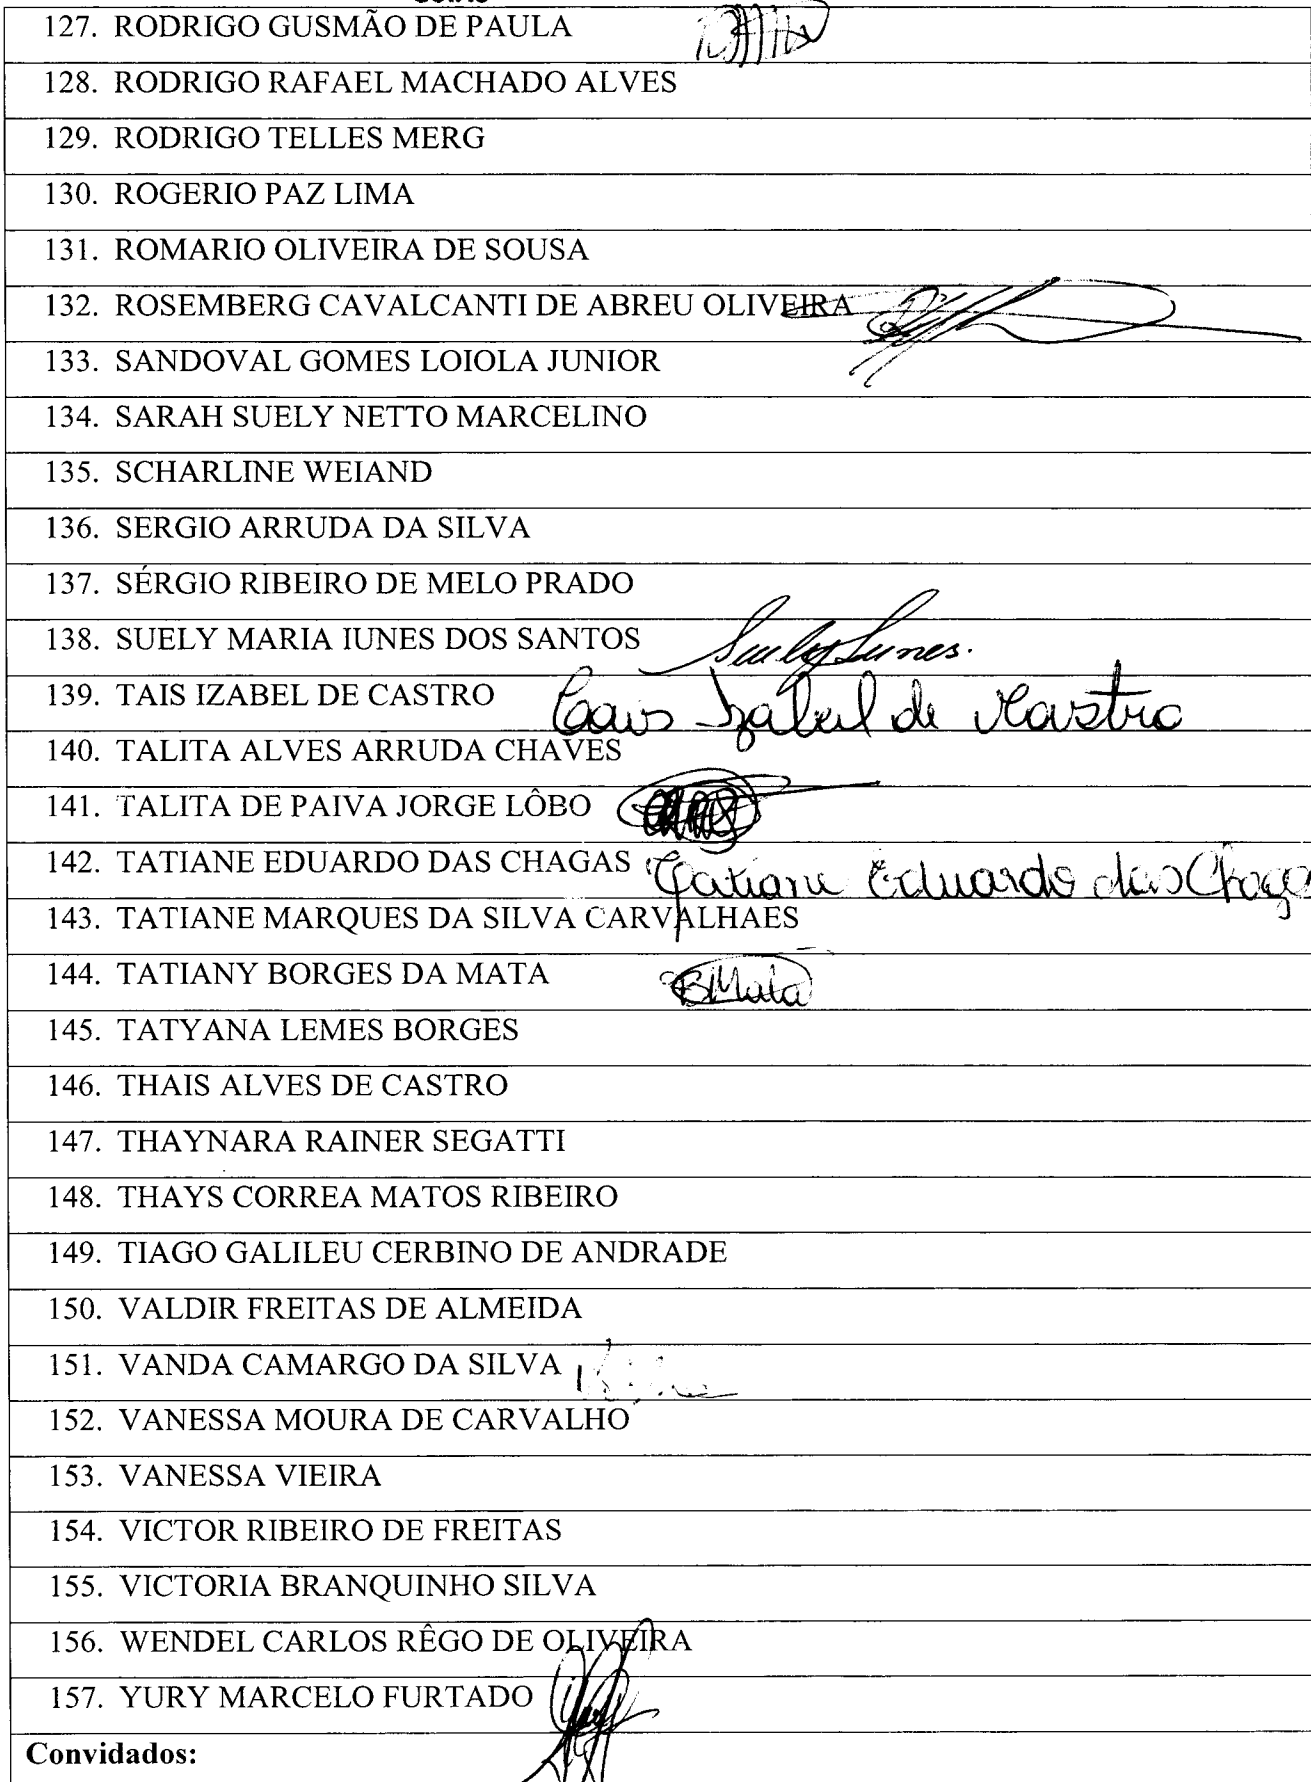 127. RODRIGO GUSMÃO DE PAULA
128. RODRIGO RAFAEL MACHADO ALVES
129. RODRIGO TELLES MERG
130. ROGERIO PAZ LIMA
131. ROMARIO OLIVEIRA DE SOUSA
132. ROSEMBERG CAVALCANTI DE ABREU OLIVEIRA
133. SANDOVAL GOMES LOIOLA JUNIOR
134. SARAH SUELY NETTO MARCELINO
135. SCHARLINE WEIAND
136. SERGIO ARRUDA DA SILVA
137. SÉRGIO RIBEIRO DE MELO PRADO
138. SUELY MARIA IUNES DOS SANTOS Suely Iunes.
139. TAIS IZABEL DE CASTRO Tais Izabel de Castro
140. TALITA ALVES ARRUDA CHAVES
141. TALITA DE PAIVA JORGE LÔBO
142. TATIANE EDUARDO DAS CHAGAS Tatiane Eduardo das Chagas
143. TATIANE MARQUES DA SILVA CARVALHAES
144. TATIANY BORGES DA MATA BMata
145. TATYANA LEMES BORGES
146. THAIS ALVES DE CASTRO
147. THAYNARA RAINER SEGATTI
148. THAYS CORREA MATOS RIBEIRO
149. TIAGO GALILEU CERBINO DE ANDRADE
150. VALDIR FREITAS DE ALMEIDA
151. VANDA CAMARGO DA SILVA
152. VANESSA MOURA DE CARVALHO
153. VANESSA VIEIRA
154. VICTOR RIBEIRO DE FREITAS
155. VICTORIA BRANQUINHO SILVA
156. WENDEL CARLOS RÊGO DE OLIVEIRA
157. YURY MARCELO FURTADO
Convidados: